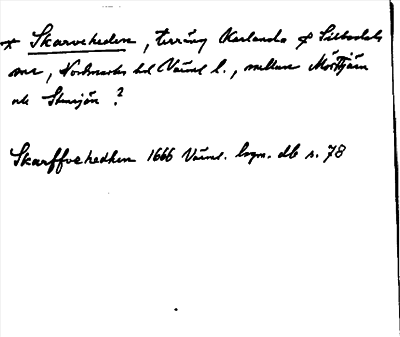 * Skarveheden, terräng Karlanda & Silbodals
snr, Nordmarks hd Värml l., mellan Mörttjärn
och Stensjön?
Skarffvehedhen 1666 Värml. lagm. db s. 78